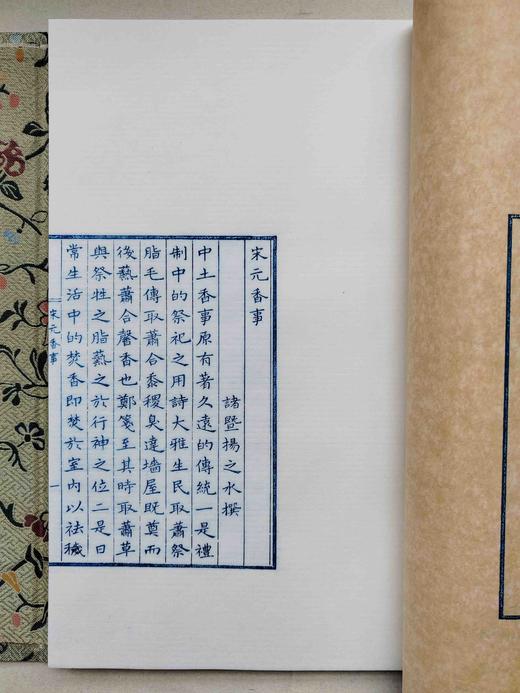 宋元香事
諸暨揚之水撰
中土香事原有著久遠的傳統一是禮
制中的祭祀之用詩大雅生民取蕭祭
脂毛傳取蕭合黍稷臭達墻屋既奠而
後爇蕭合馨香也鄭箋至其時取蕭草
與祭牲之脂爇之於行神之位二是日
常生活中的焚香即焚於室內以祛穢
宋元香事
一